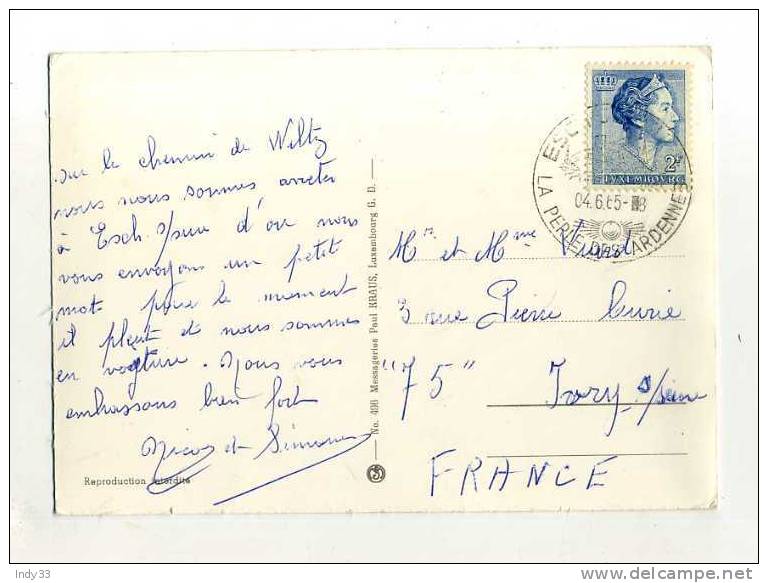 sur le chemin de Wiltz
nous nous sommes arreter
à Esch s/sure d'ou nous
vous envoyons un petit
mot pour le moment
il pleut et nous sommes
en voyture. Nous vous
embrassons bien fort
Nicos et Simone
Reproduction interdite
No. 496 Messageries Paul KRAUS, Luxembourg G. D.
2F
LUXEMBOURG
ES
LA PERLE DES ARDENNES
04.6.65-
Mr et Mme
3 rue Pierre Curie
"75" Ivry s/seine
FRANCE
Indy33
www.delcampe.net